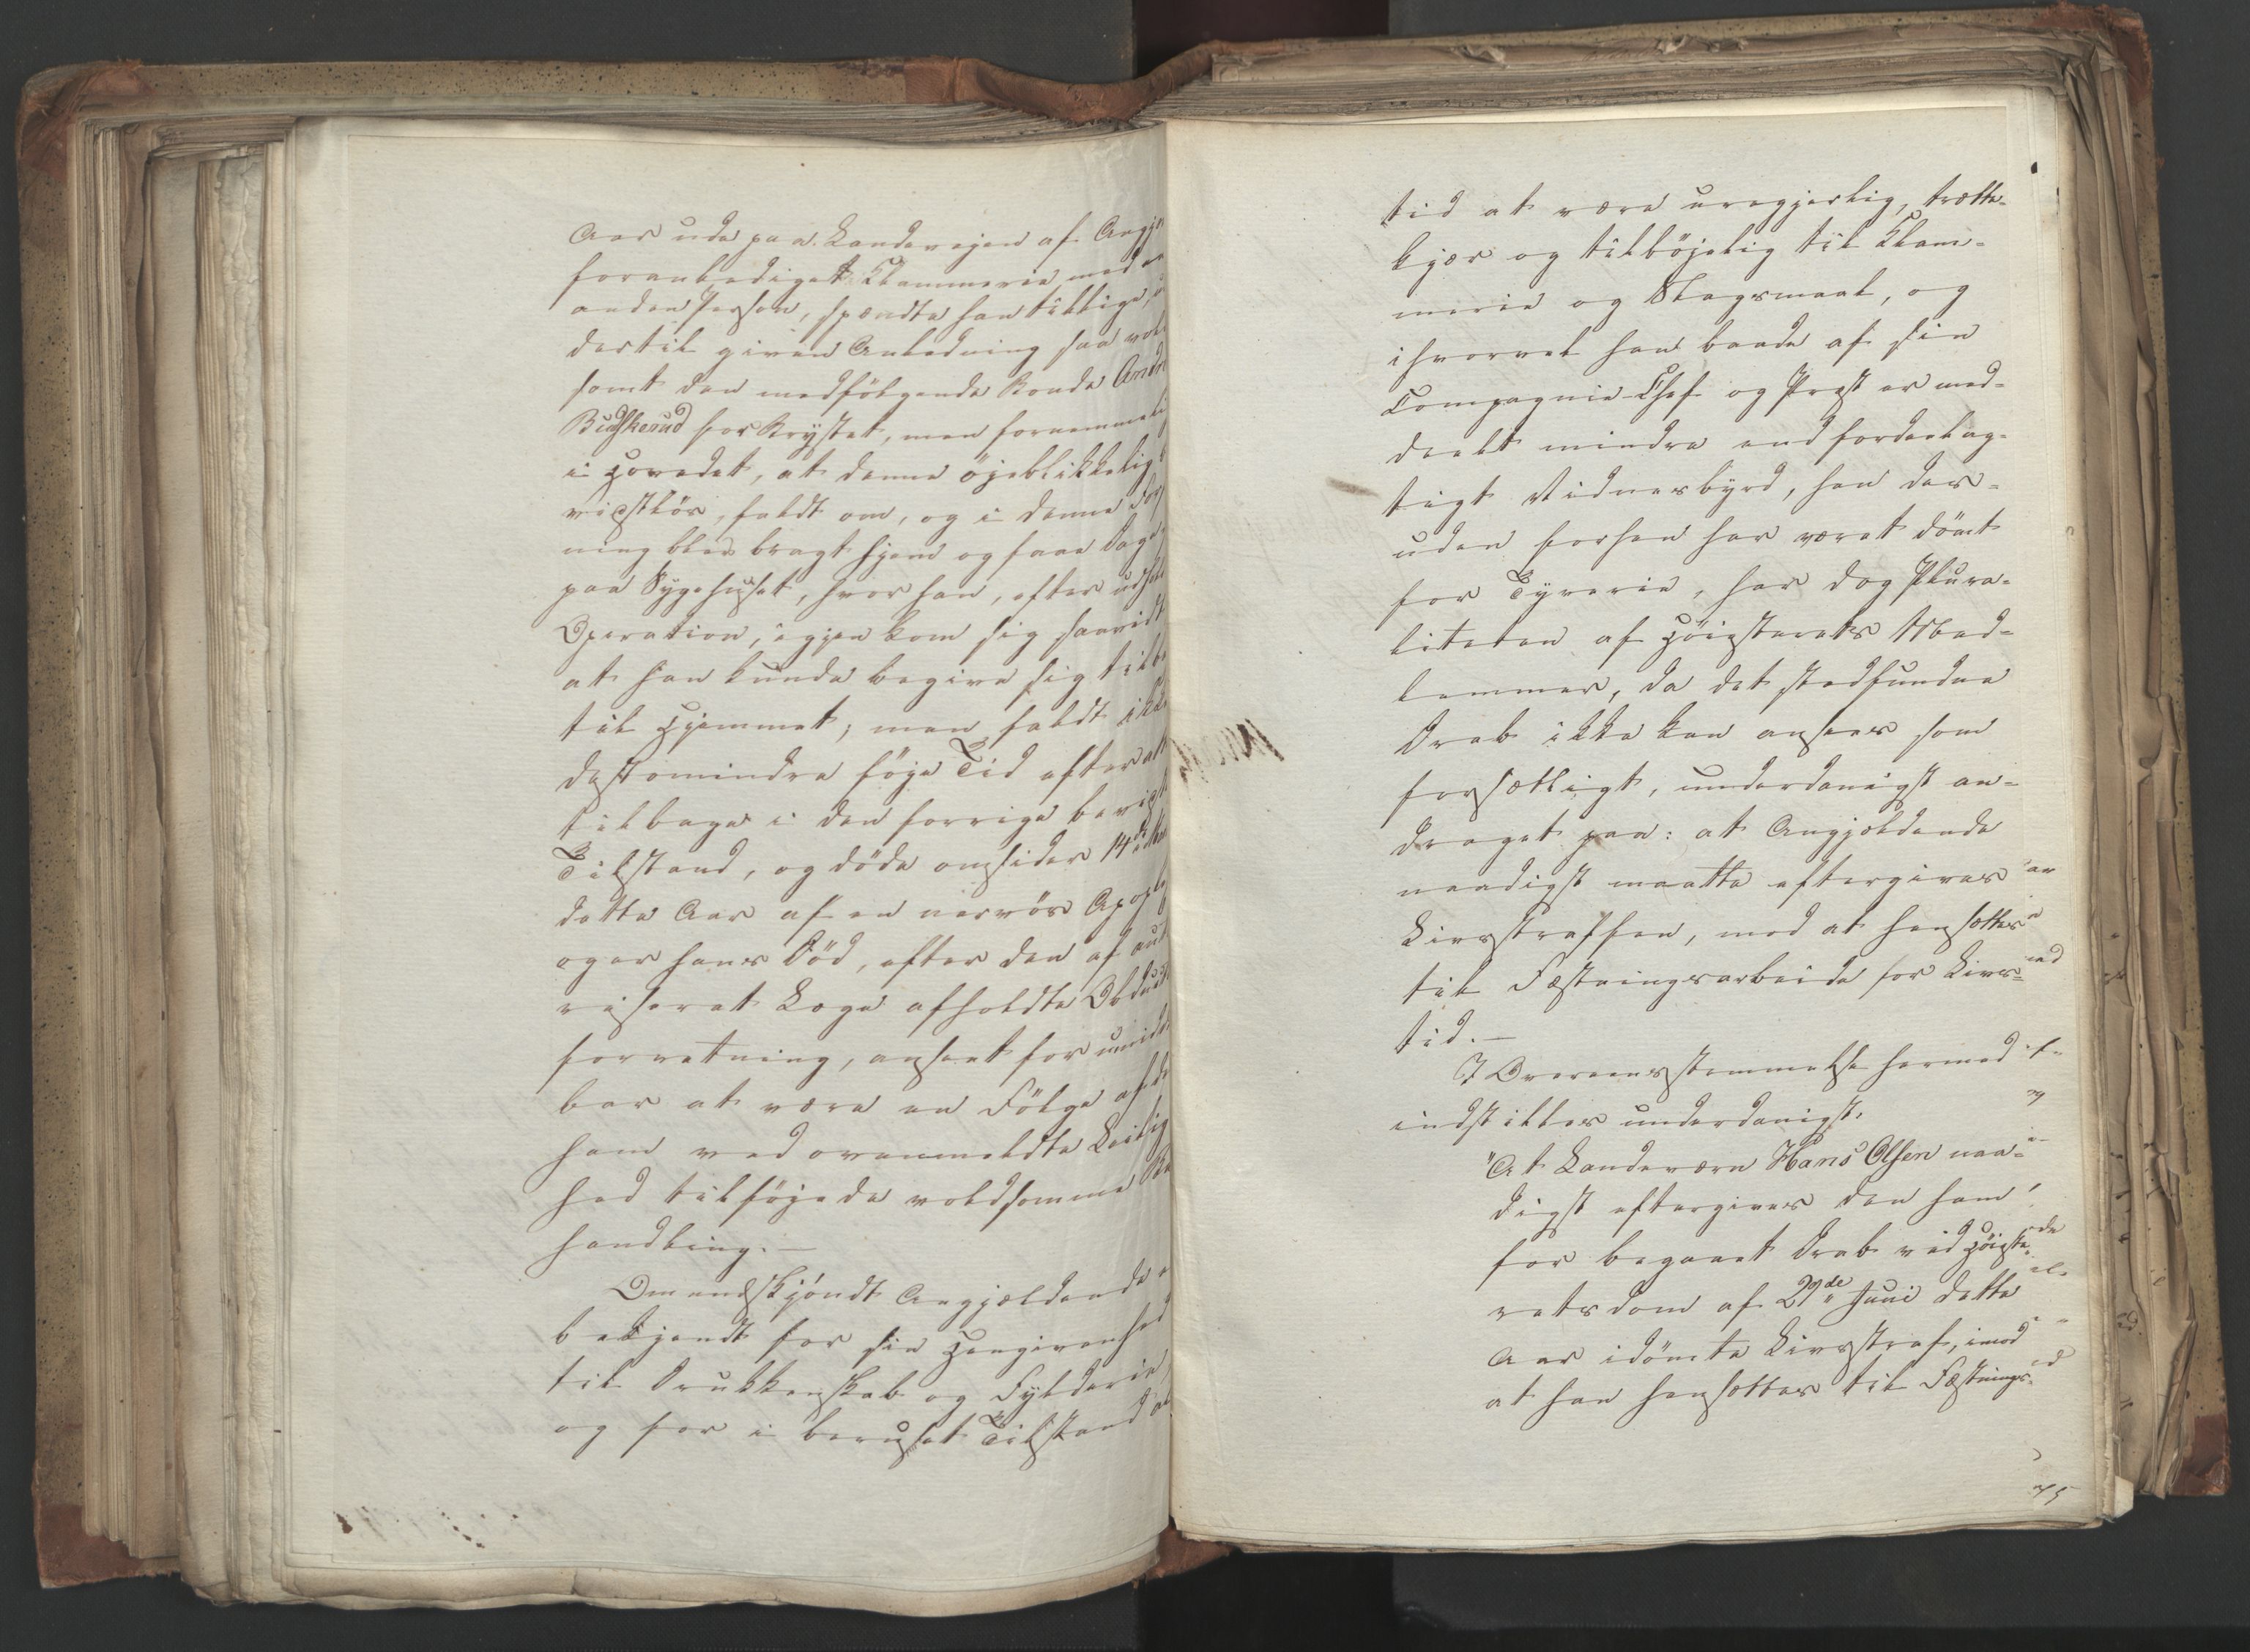 Aar ude paa Landevejen af Angjæ
foranlediget Klammerie med en
anden Person, spændte han tillige,
dertil given Anledning saa vel
samt den medfølgende Bonde Andr
Budskerud for Brystet, men fornemmeli
i Hovedet, at denne øjeblikkelig
vistløs, faldt om, og i denne For
ning blev bragt hjem og faae Dage
paa Sygehuset, hvor han, efter udst
Operation, igjen kom sig saavidt
at han kunde begive sig tilba
til Hjemmet; men faldt ikke
destomindre føje Tid efter atter
tilbage i den forrige bevist
Tilstand, og døde omsider 14de
dette Aar af en nervøs Apople
og er hans Død, efter den af aut
riseret Læge afholdte Obduct
forretning, anseet for umidd
bar at være en Følge af de
ham ved ovenmeldte Leilig
hed tilføjede voldsomme Be
handling. —
Omendskjøndt Angjældende
bekjendt for sin Hengivenhed
til Drukkenskab og Fylderie,
og for i beruset Tilstand al
tid at være uregjerlig, trætte-
kjær og tilbøjelig til Klam-
merie og Slagsmaal, og
ihvorvel han baade af sin
Compagnie-Chef og Præst er med-
deelt mindre end fordeelag-
tigt Vidnesbyrd, han der-
uden forhen har været dømt
for Tyverie, har dog Plura-
liteten af Høiesterets Med-
lemmer, da det stedfundne
Drab ikke kan ansees som
forsætligt, underdanigst an-
draget paa: at Angjældende
naadigst maatte eftergives
Livsstraffen, mod at hensættes
til Fæstningsarbeide for Livs-
tid. —
I Overeensstemmelse hermed
indstilles underdanigst,
"At Landeværn Hans Olsen naa-
digst eftergives den ham
for begaaet Drab ved Høieste-
retsdom af 29de Juni dette
Aar idømte Livsstraf, imod
at han hensættes til Fæstnings-